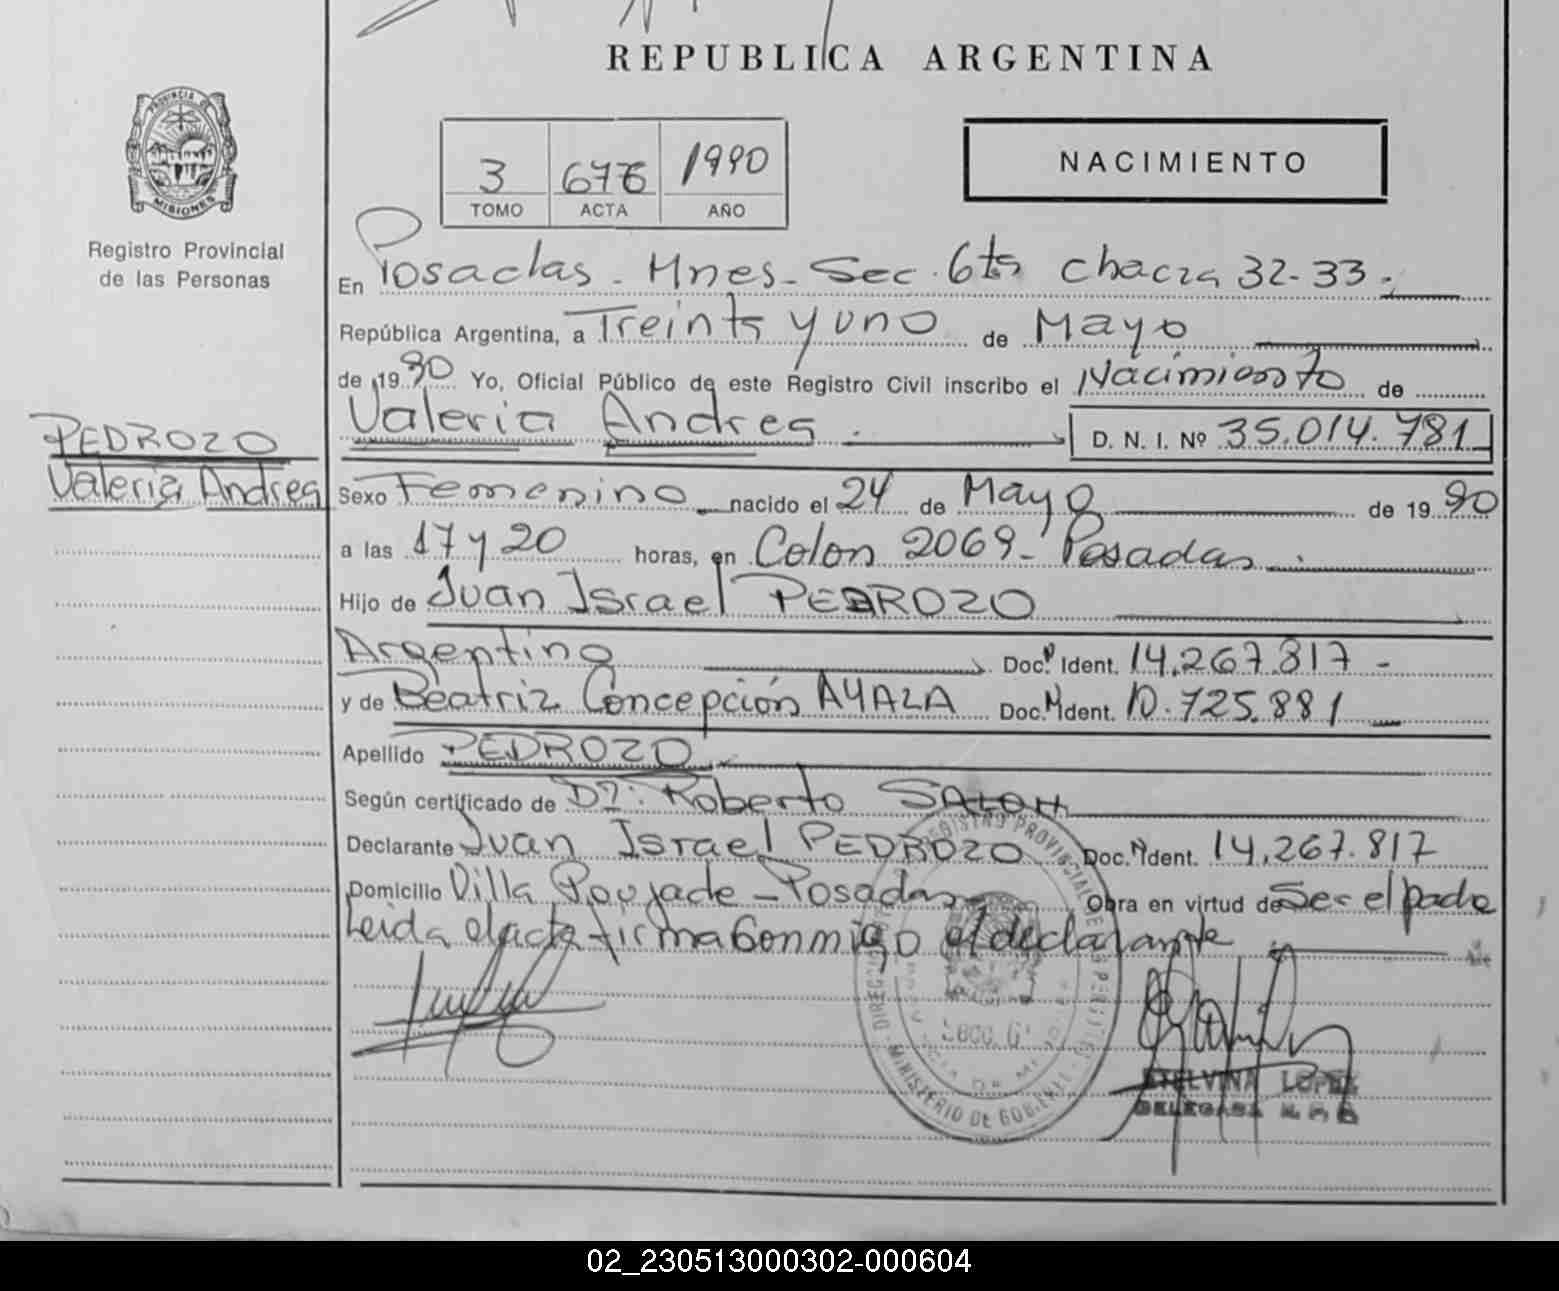 REPUBLICA ARGENTINA
PROVINCIA DE
MISIONES
Registro Provincial
de las Personas
3 676 1990
TOMO ACTA AÑO
NACIMIENTO
En Posadas - Mnes - Sec. 6ta chacra 32-33.-
República Argentina, a Treinta y uno de Mayo
de 1990 Yo, Oficial Público de este Registro Civil inscribo el Nacimiento de
Valeria Andrea. D. N. I. Nº 35.014.781
PEDROZO
Valeria Andrea
Sexo Femenino nacido el 24 de Mayo de 1990
a las 17 y 20 horas, en Colon 2069 - Posadas.
Hijo de Juan Israel PEDROZO
Argentino Doc. Ident. 14.267.817 -
y de Beatriz Concepción AYALA Doc. Ident. 10.725.881
Apellido PEDROZO
Según certificado de Dr: Roberto
Declarante Juan Israel PEDROZO Doc. Ident. 14.267.817
Domicilio Villa Poujade - Posadas Obra en virtud de Ser el padre
Leida el acta firma conmigo el declarante
REGISTRO PROVINCIAL DE LAS PERSONAS
MINISTERIO DE GOBIERNO
SECC. 6
ETELVINA LOPEZ
DELEGADA
02_230513000302-000604